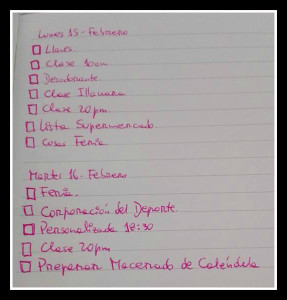 Lunes 15 - Febrero
Llaves
Clase 10am
Desodorante
Clase Illanara
Clase 20pm.
Lista Supermercado.
Cosas Feria
Martes 16 - Febrero
Feria.
Corporación del Deporte.
Personalizado 18:30
Clase 20pm
Preparar Macerado de Caléndula